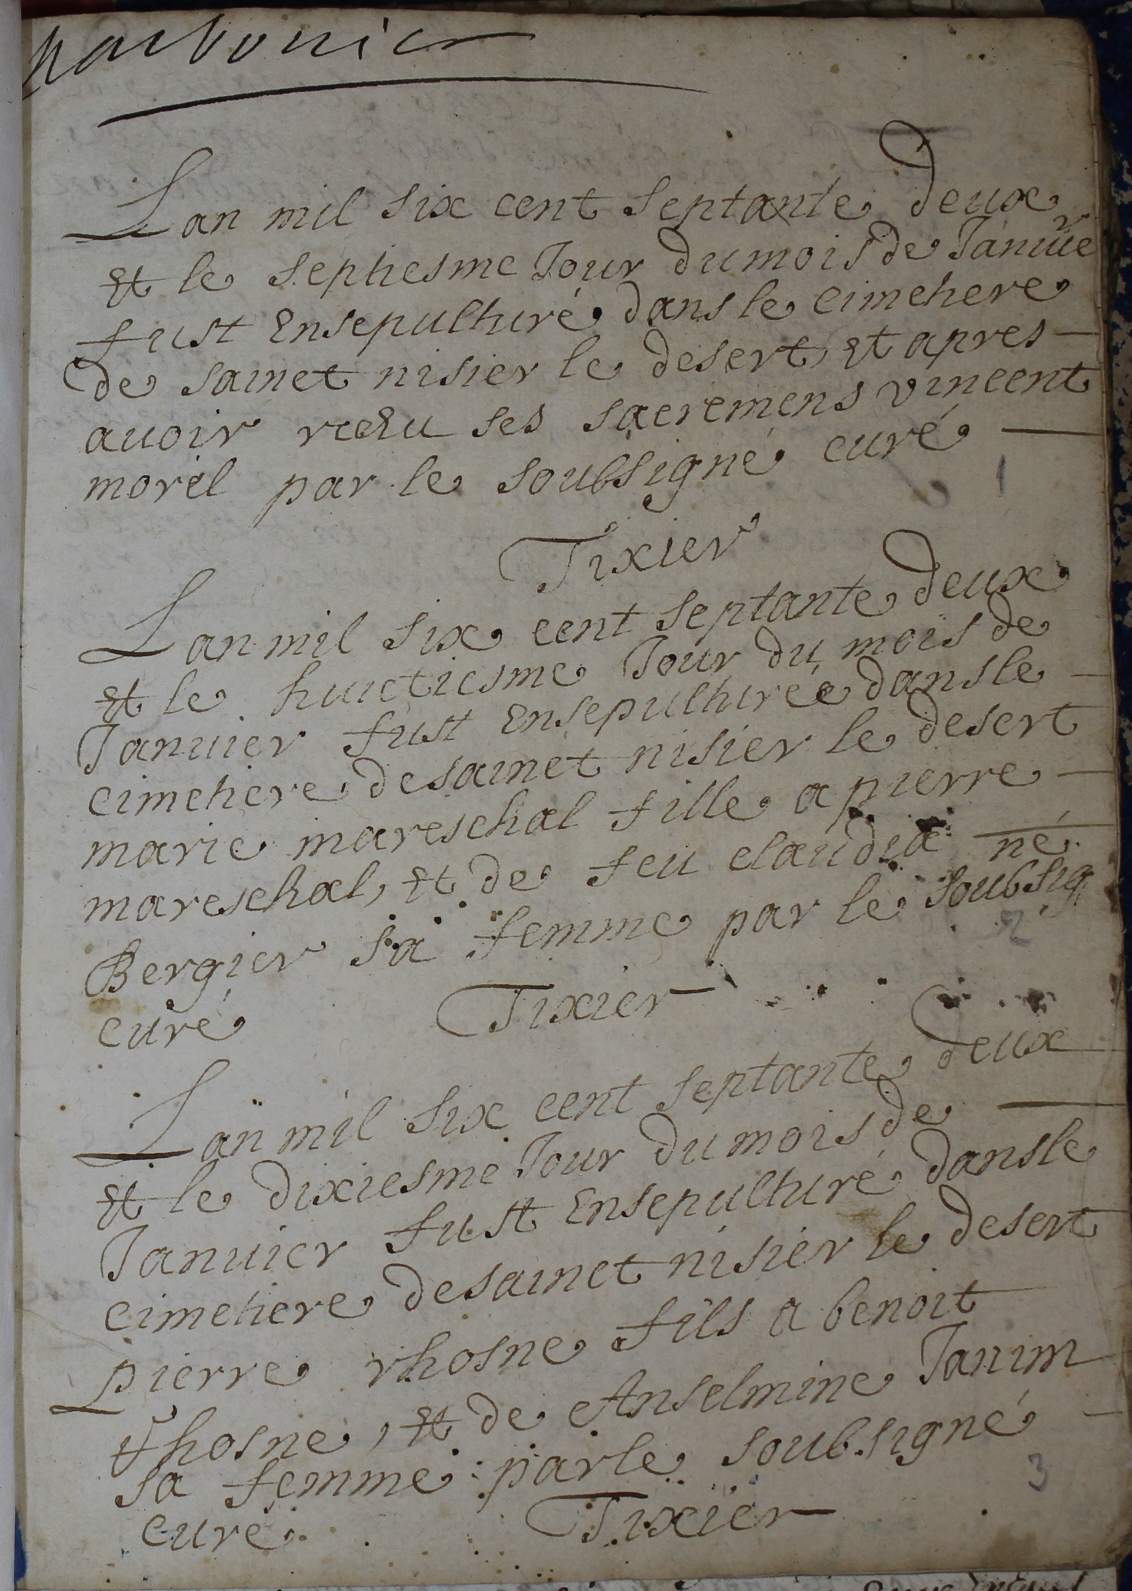 Narbonier
Lan mil six cent septante deux
Et le septiesme Jour du mois de Januie
r
fust Ensepulturé dans le cimetiere
de sainct nisier le desert, Et apres
auoir receu ses sacremens vincent
morel par le soubsigné curé
1
Tixier
Lan mil six cent septante deux
Et le huictiesme Jour du mois de
Januier fust Ensepulturée dans le
cimetiere de sainct nisier le desert
marie mareschal fille a pierre
mareschal, Et de feu claudia
né
Bergier sa femme par le soubsig
2
curé Tixier
Lan mil six cent septante deux
Et le dixiesme Jour du mois de
Januier fust Ensepulturé dans le
cimetiere de sainct nisier le desert
pierre rhosne fils a benoit
rhosne, Et de Anselmine Janim
sa femme par le soubsigné
3
curé Tixier